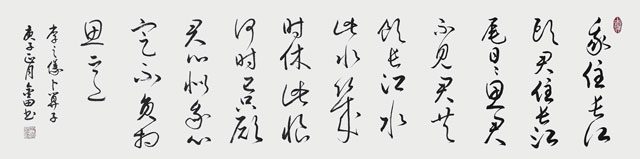 我住长江
头君住长江
尾日〻思君
不见君共
饮长江水
此水几
时休此恨
何时已只愿
君心似我心
定不负相
思意
李之仪卜算子
庚子正月 书